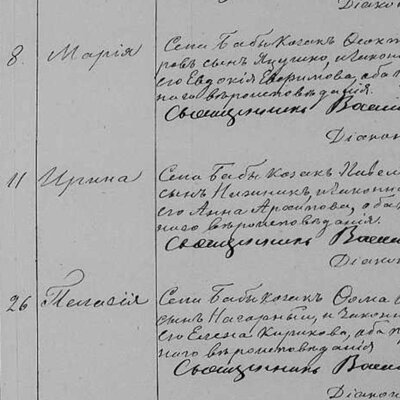 Діако
8 Марія Села Бабы Козакъ Ѳеокт
ровъ сынъ Якушко, и законн
его Евдокія Ефремова, оба п
наго вѣроисповѣданія.
Священникъ Васил
Діакон
11 Ирина Села Бабы Козакъ Павел
сынъ и законна
его Анна оба
наго вѣроисповѣданія.
Священникъ Васил
Діакон
26 Пелагія Села Бабы Козакъ Ѳома
сынъ Нагорный, и законн
его Елена Кирикова, оба пр
наго вѣроисповѣданія
Священникъ Васил
Діакон